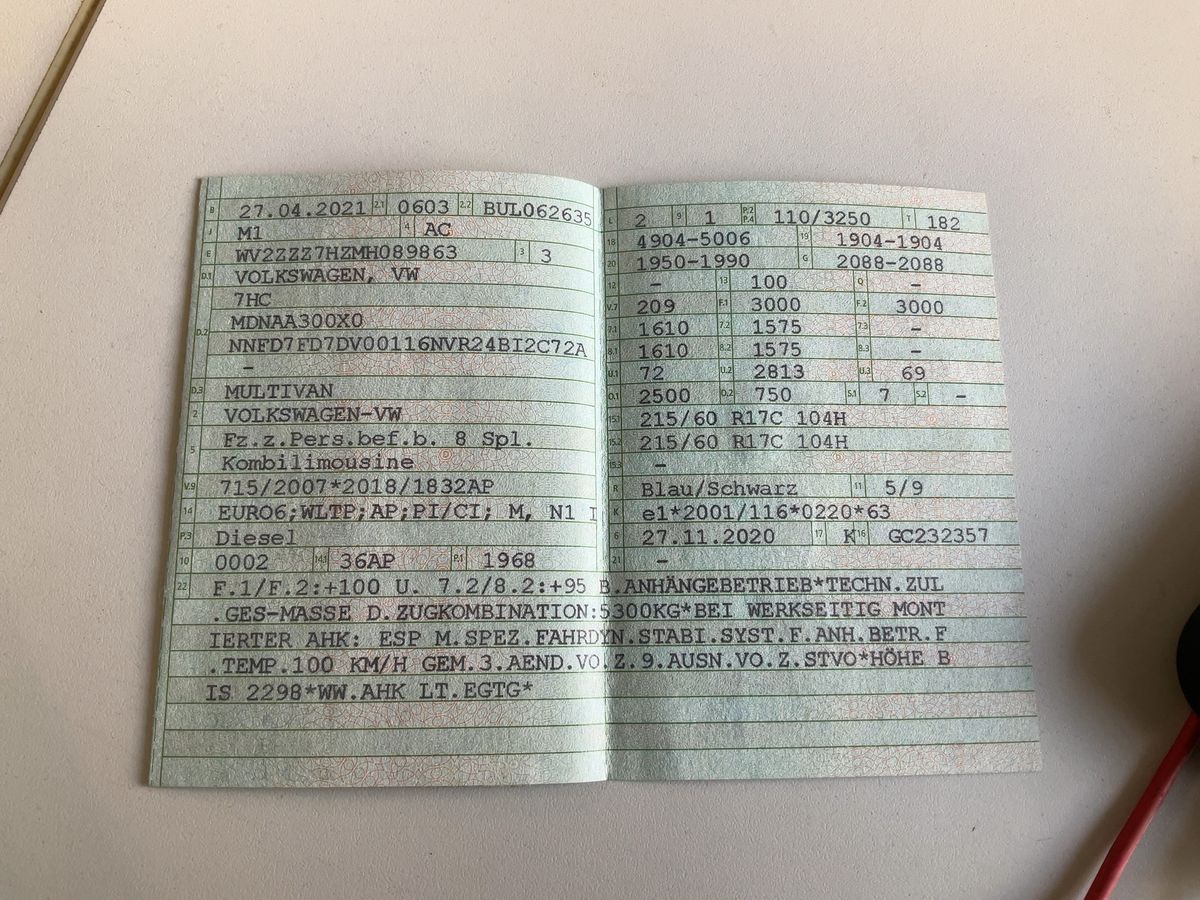 B 27.04.2021 2.1 0603 2.2 BUL062635
J M1 4 AC
E WV2ZZZ7HZMH089863 3 3
D.1 VOLKSWAGEN, VW
7HC
D.2 MDNAA300X0
NNFD7FD7DV00116NVR24BI2C72A
-
D.3 MULTIVAN
2 VOLKSWAGEN-VW
5 Fz.z.Pers.bef.b. 8 Spl.
Kombilimousine
V.9 715/2007*2018/1832AP
14 EURO6;WLTP;AP;PI/CI; M, N1 I
P.3 Diesel
10 0002 14.1 36AP P.1 1968
L 2 9 1 P.2 P.4 110/3250 T 182
18 4904-5006 19 1904-1904
20 1950-1990 G 2088-2088
12 - 13 100 Q -
V.7 209 F.1 3000 F.2 3000
7.1 1610 7.2 1575 7.3 -
8.1 1610 8.2 1575 8.3 -
U.1 72 U.2 2813 U.3 69
O.1 2500 O.2 750 S.1 7 S.2 -
15.1 215/60 R17C 104H
15.2 215/60 R17C 104H
15.3 -
R Blau/Schwarz 11 5/9
K e1*2001/116*0220*63
6 27.11.2020 17 K 16 GC232357
21 -
22 F.1/F.2:+100 U. 7.2/8.2:+95 B.ANHÄNGEBETRIEB*TECHN.ZUL
.GES-MASSE D.ZUGKOMBINATION:5300KG*BEI WERKSEITIG MONT
IERTER AHK: ESP M.SPEZ.FAHRDYN.STABI.SYST.F.ANH.BETR.F
.TEMP.100 KM/H GEM.3.AEND.VO.Z.9.AUSN.VO.Z.STVO*HÖHE B
IS 2298*WW.AHK LT.EGTG*